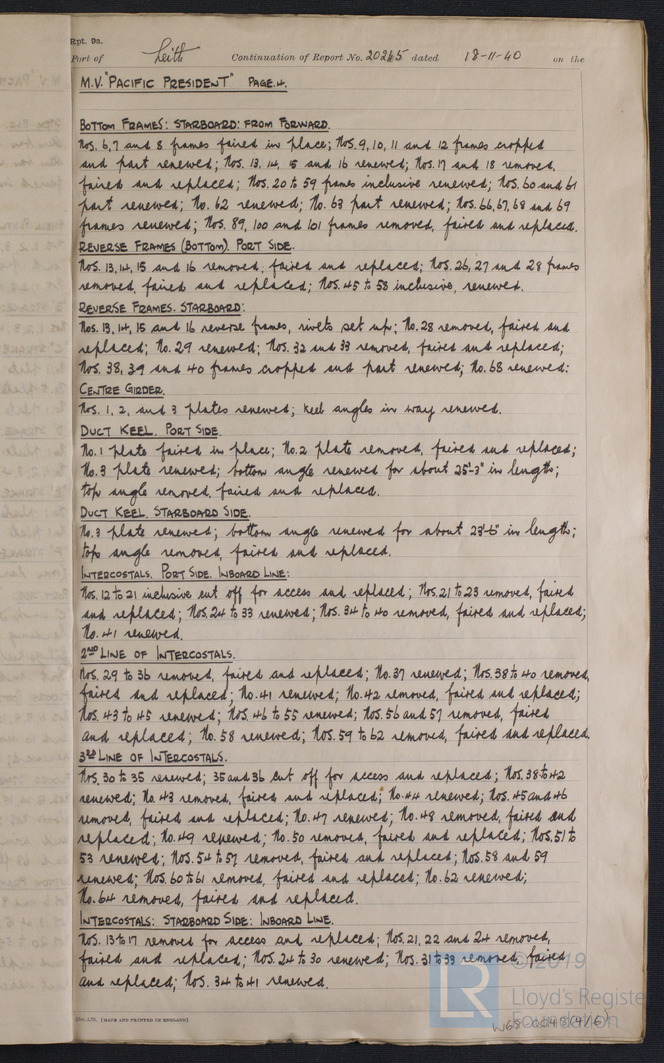 Rpt. 9a.
Port of Leith Continuation of Report No. 20245 dated 18-11-40 on the
M.V. "PACIFIC PRESIDENT" PAGE.4.
BOTTOM FRAMES: STARBOARD: FROM FORWARD.
Nos. 6, 7 and 8 frames faired in place; Nos. 9, 10, 11 and 12 frames cropped
and part renewed; Nos. 13, 14, 15 and 16 renewed; Nos. 17 and 18 removed,
faired and replaced; Nos. 20 to 59 frames inclusive renewed; Nos. 60 and 61
part renewed; No. 62 renewed; No. 63 part renewed; Nos. 66, 67, 68 and 69
frames renewed; Nos. 89, 100 and 101 frames removed, faired and replaced.
REVERSE FRAMES (BOTTOM). PORT SIDE.
Nos. 13, 14, 15 and 16 removed, faired and replaced; Nos. 26, 27 and 28 frames
removed, faired and replaced; Nos. 45 to 58 inclusive, renewed.
REVERSE FRAMES. STARBOARD:
Nos. 13, 14, 15 and 16 reverse frames, rivets set up; No. 28 removed, faired and
replaced; No. 29 renewed; Nos. 32 and 33 removed, faired and replaced;
Nos. 38, 39 and 40 frames cropped and part renewed; No. 68 renewed:
CENTRE GIRDER.
Nos. 1, 2, and 3 plates renewed; keel angles in way renewed.
DUCT KEEL. PORT SIDE.
No. 1 plate faired in place; No. 2 plate removed, faired and replaced;
No. 3 plate renewed; bottom angle renewed for about 25'-3" in length;
top angle removed, faired and replaced.
DUCT KEEL. STARBOARD SIDE.
No. 3 plate renewed; bottom angle renewed for about 23'-6" in length;
top angle removed, faired and replaced.
INTERCOSTALS. PORT SIDE. INBOARD LINE:
Nos. 12 to 21 inclusive cut off for access and replaced; Nos. 21 to 23 removed, faired
and replaced; Nos. 24 to 33 renewed; Nos. 34 to 40 removed, faired and replaced;
No. 41 renewed.
2ND LINE OF INTERCOSTALS.
Nos. 29 to 36 removed, faired and replaced; No. 37 renewed; Nos. 38 to 40 removed,
faired and replaced; No. 41 renewed; No. 42 removed, faired and replaced;
Nos. 43 to 45 renewed; Nos. 46 to 55 renewed; Nos. 56 and 57 removed, faired
and replaced; No. 58 renewed; Nos. 59 to 62 removed, faired and replaced.
3RD LINE OF INTERCOSTALS.
Nos. 30 to 35 renewed; 35 and 36 cut off for access and replaced; Nos. 38 to 42
renewed; No. 43 removed, faired and replaced; No. 44 renewed; Nos. 45 and 46
removed, faired and replaced; No. 47 renewed; No. 48 removed, faired and
replaced; No. 49 renewed; No. 50 removed, faired and replaced; Nos. 51 to
53 renewed; Nos. 54 to 57 removed, faired and replaced; Nos. 58 and 59
renewed; Nos. 60 to 61 removed, faired and replaced; No. 62 renewed;
No. 64 removed, faired and replaced.
INTERCOSTALS: STARBOARD SIDE: INBOARD LINE.
Nos. 13 to 17 removed for access and replaced; Nos. 21, 22 and 24 removed,
faired and replaced; Nos. 24 to 30 renewed; Nos. 31 to 33 removed, faired
and replaced; Nos. 34 to 41 renewed.
(MADE AND PRINTED IN ENGLAND)
LR
© 2019
Lloyd's Register
Foundation
W68-0048(4/6)